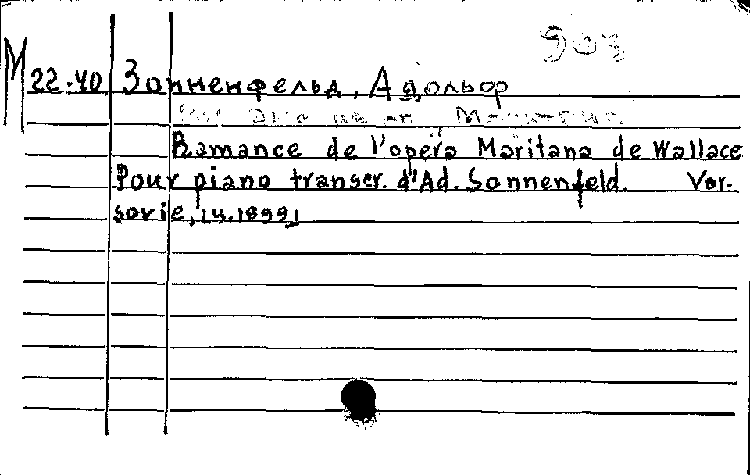 903
М 22-40 Зонненфельд, Адольф
Romance de l'opera Maritana de Wallace
Pour piano transcr. d'Ad. Sonnenfeld. Var-
sovie, [ц.1899]